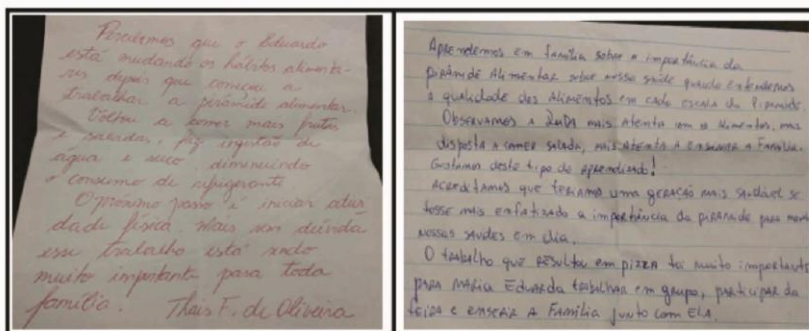 Percebemos que o Eduardo
está mudando os hábitos alimenta-
res depois que começou a
trabalhar a pirâmide alimentar.
Voltou a comer mais frutas
e saladas, faz ingestão de
água e suco, diminuindo
o consumo de refrigerante
O próximo passo é iniciar ativi
dade física. Mais sem dúvida
esse trabalho está sendo
muito importante para toda
família. Thais F. de Oliveira
Aprendemos em família sobre a importância da
pirâmide Alimentar sobre nossa saúde quando entendemos
a qualidade dos Alimentos em cada escala da Pirâmide.
Observamos a mais atenta com os Alimentos, mais
disposta a comer salada, mais atenta a ensinar a Família.
Gostamos deste tipo de aprendizado!
Acreditamos que teríamos uma geração mais saudável se
fosse mais enfatizado a importância da pirâmide para
nossas saúdes em dia.
O trabalho que resultou em pizza foi muito importante
para Maria Eduarda trabalhar em grupo, participar da
feira e inserir a Família junto com ELA.